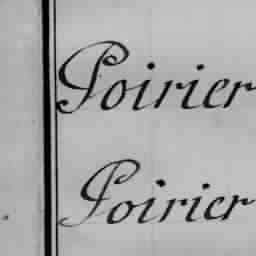 Poirier
Poirier